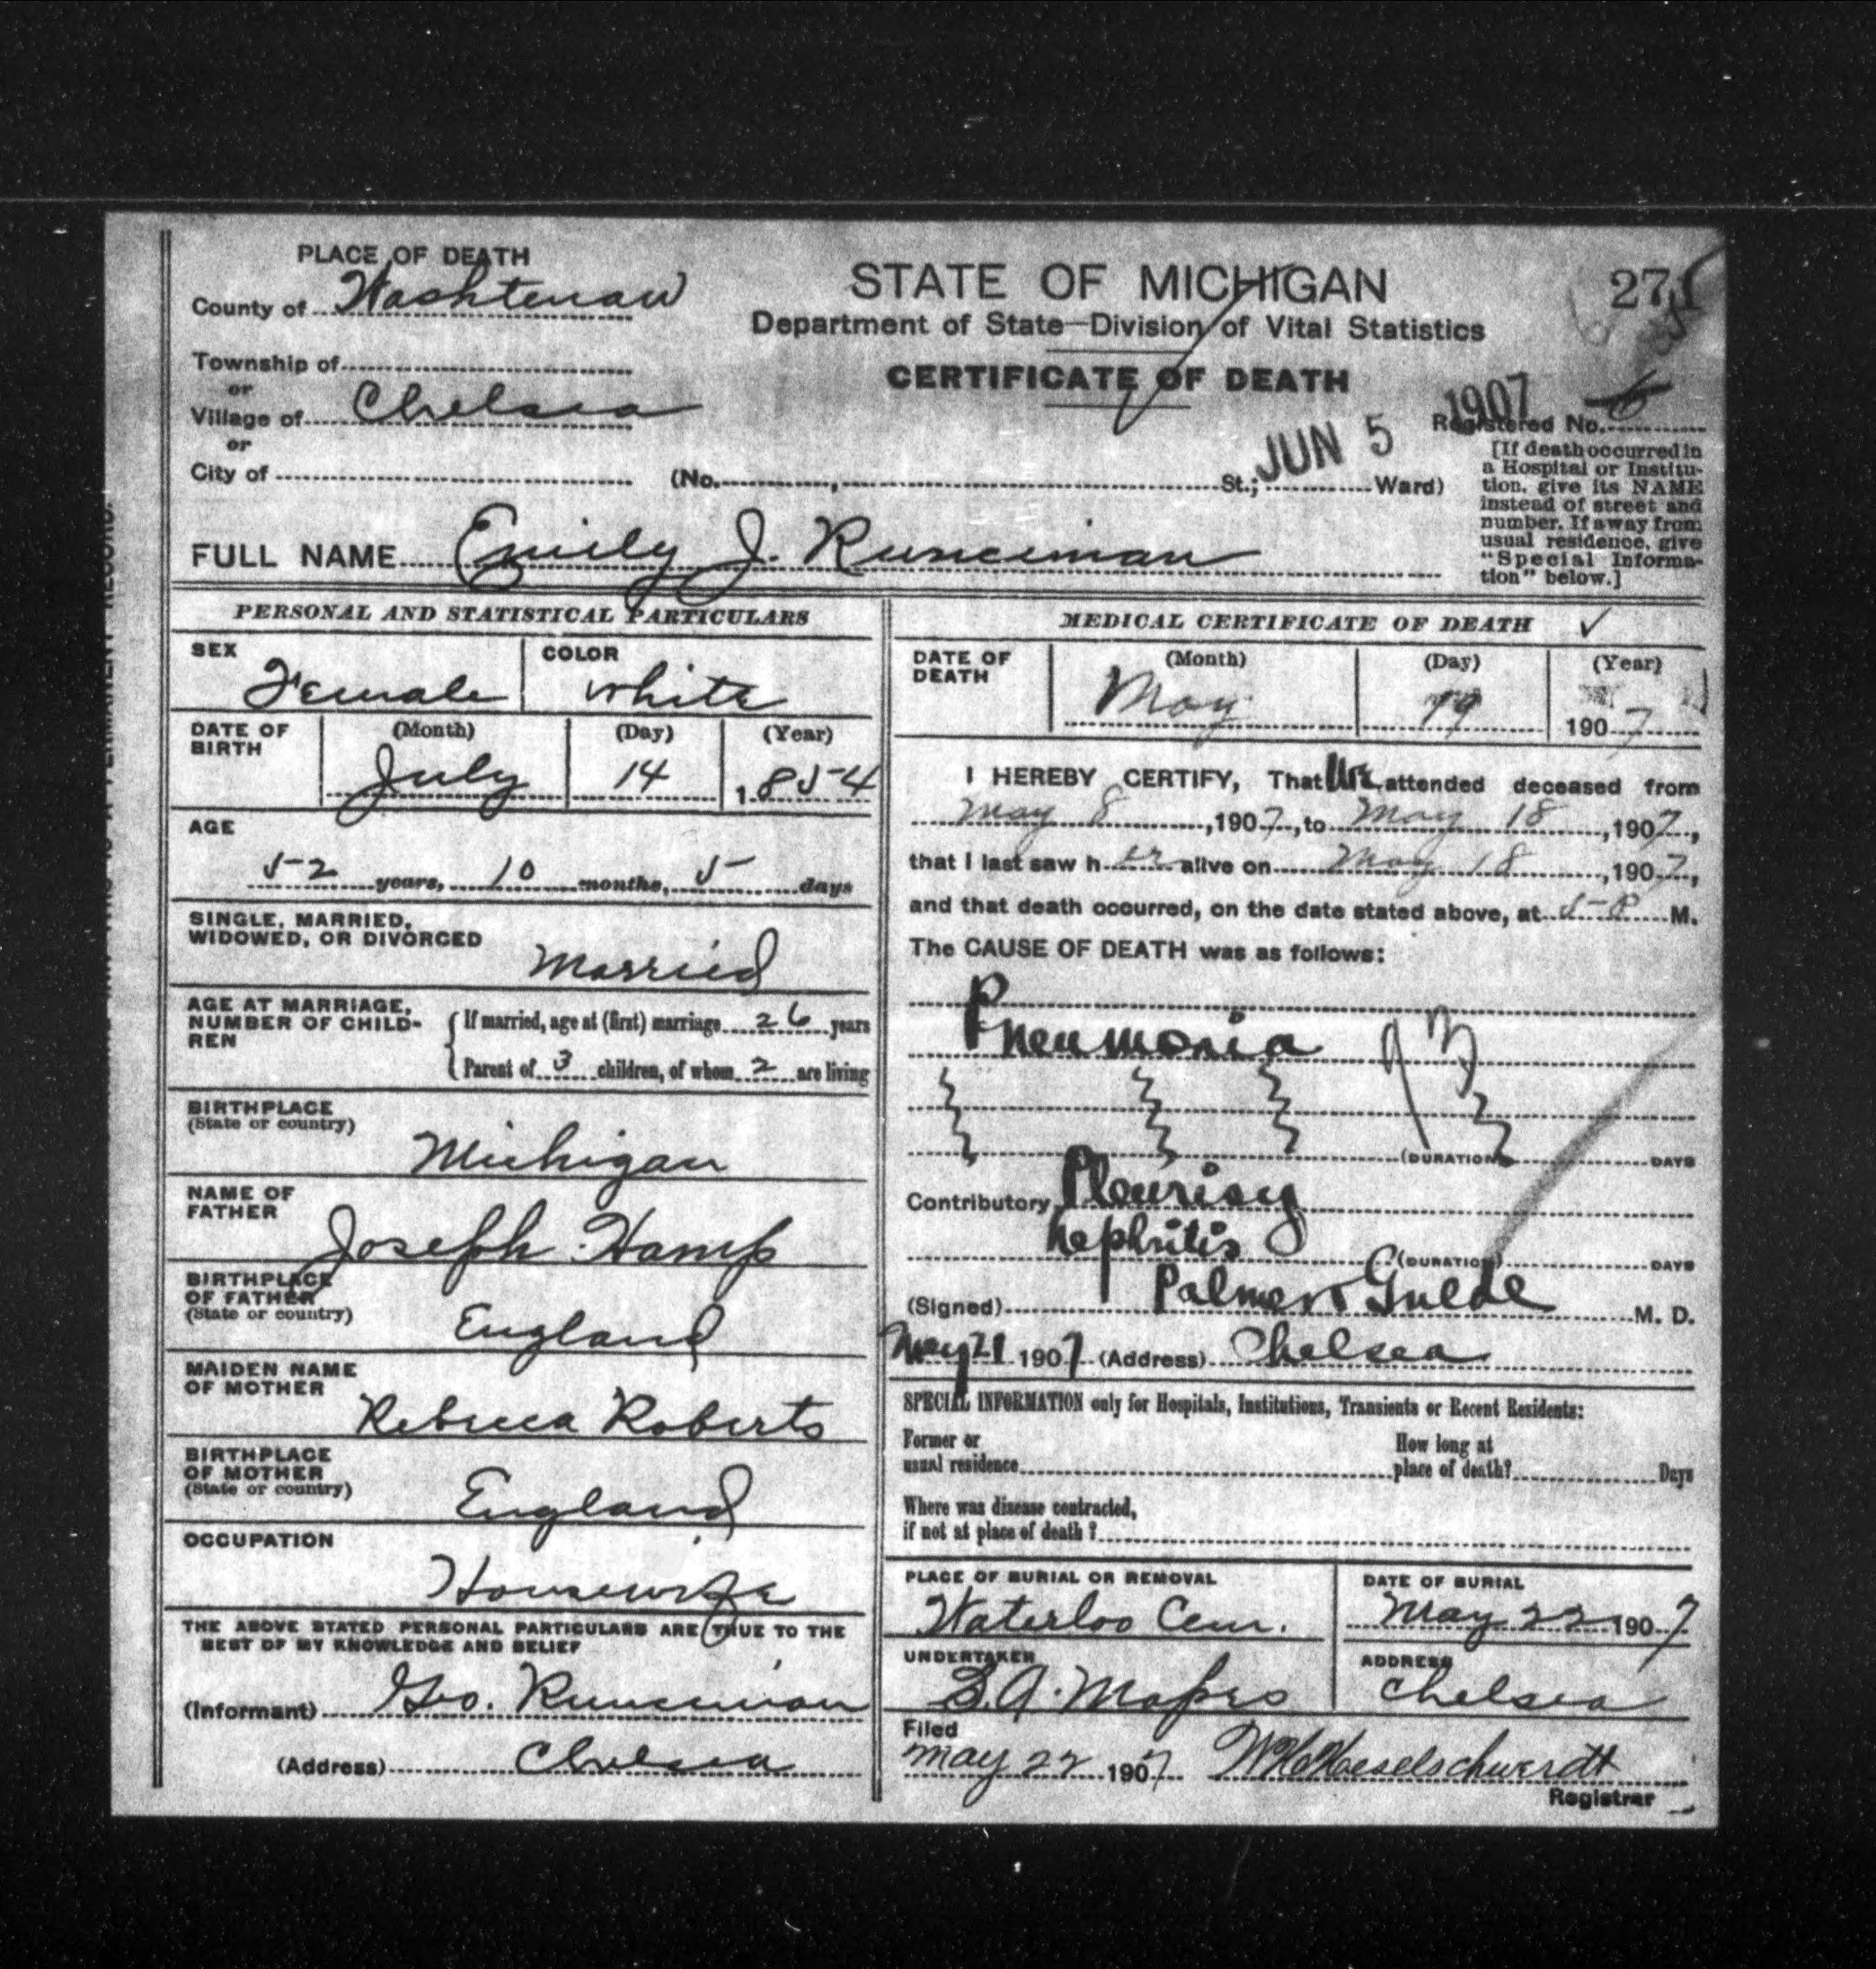 PLACE OF DEATH
County of Washtenaw
Township of
or
Village of Chelsea
or
City of
STATE OF MICHIGAN
Department of State—Division of Vital Statistics
CERTIFICATE OF DEATH
271
1907
Registered No. 6
JUN 5
(No. , St.; Ward)
[If death occurred in
a Hospital or Institu-
tion, give its NAME
instead of street and
number. If away from
usual residence, give
"Special Informa-
tion" below.]
FULL NAME Emily J. Runciman
PERSONAL AND STATISTICAL PARTICULARS
SEX Female
COLOR White
DATE OF BIRTH
(Month) (Day) (Year)
July 14 1854
AGE
52 years, 10 months, 5 days
SINGLE, MARRIED,
WIDOWED, OR DIVORCED
Married
AGE AT MARRIAGE,
NUMBER OF CHILD-
REN
If married, age at (first) marriage 26 years
Parent of 3 children, of whom 2 are living
BIRTHPLACE
(State or country)
Michigan
NAME OF
FATHER
Joseph Hamp
BIRTHPLACE
OF FATHER
(State or country)
England
MAIDEN NAME
OF MOTHER
Rebecca Roberts
BIRTHPLACE
OF MOTHER
(State or country)
England
OCCUPATION
Housewife
THE ABOVE STATED PERSONAL PARTICULARS ARE TRUE TO THE
BEST OF MY KNOWLEDGE AND BELIEF
(Informant) Geo. Runciman
(Address) Chelsea
MEDICAL CERTIFICATE OF DEATH
DATE OF
DEATH
(Month) (Day) (Year)
May 19 1907
I HEREBY CERTIFY, That We attended deceased from
May 8, 1907, to May 18, 1907,
that I last saw her alive on May 18, 1907,
and that death occurred, on the date stated above, at 5 P M.
The CAUSE OF DEATH was as follows:
Pneumonia
(DURATION) DAYS
Contributory Pleurisy
Nephritis
(DURATION) DAYS
(Signed) Palmer & Gulde M. D.
May 21 1907 (Address) Chelsea
SPECIAL INFORMATION only for Hospitals, Institutions, Transients or Recent Residents:
Former or
usual residence
How long at
place of death? Days
Where was disease contracted,
if not at place of death?
PLACE OF BURIAL OR REMOVAL
Waterloo Cem.
DATE OF BURIAL
May 22 1907
UNDERTAKER
S. A. Mapes
ADDRESS
Chelsea
Filed
May 22 1907 W H Heselschwerdt
Registrar